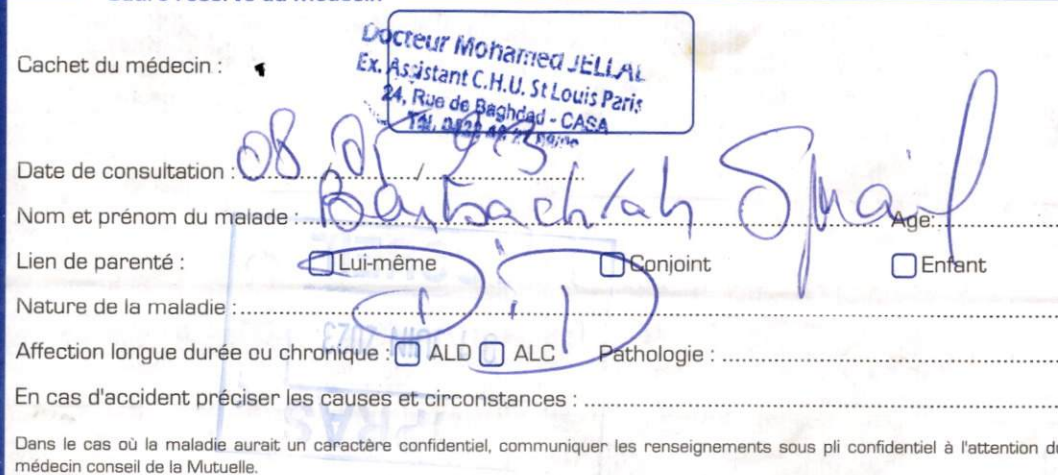 Cachet du médecin :
Docteur Mohamed JELLAL
Ex. Assistant C.H.U. St Louis Paris
24, Rue de Baghdad - CASA
Date de consultation : 08
Nom et prénom du malade : Age:
Lien de parenté : Lui-même Conjoint Enfant
Nature de la maladie :
Affection longue durée ou chronique : ALD ALC Pathologie :
En cas d'accident préciser les causes et circonstances :
Dans le cas où la maladie aurait un caractère confidentiel, communiquer les renseignements sous pli confidentiel à l'attention du
médecin conseil de la Mutuelle.